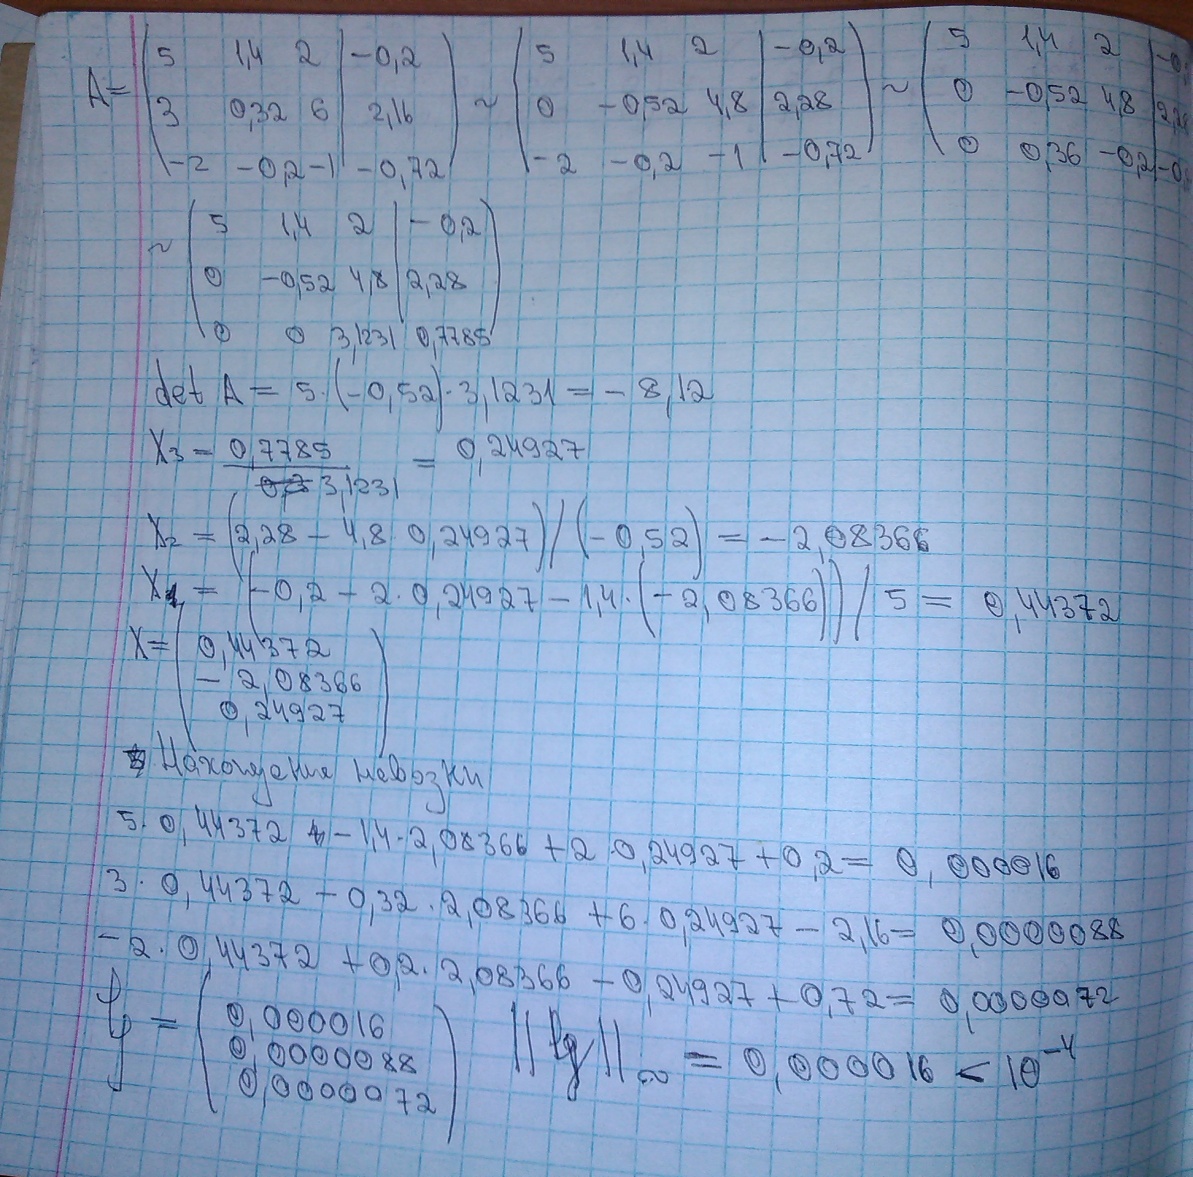 A= ( 5 1,4 2 | -0,2 ) ~ ( 5 1,4 2 | -0,2 ) ~ ( 5 1,4 2
3 0,32 6 | 2,16 0 -0,52 4,8 | 2,28 0 -0,52 4,8
-2 -0,2 -1 | -0,72 -2 -0,2 -1 | -0,72 0 0,36 -0,2
~ ( 5 1,4 2 | -0,2 )
0 -0,52 4,8 | 2,28
0 0 3,1231 0,7785
det A = 5·(-0,52)·3,1231 = -8,12
X3 = 0,7785 / 3,1231 = 0,24927
X2 = (2,28 - 4,8·0,24927)/(-0,52) = -2,08366
X1 = (-0,2 - 2·0,24927 - 1,4·(-2,08366))/5 = 0,44372
X = ( 0,44372
-2,08366
0,24927 )
Нахождение невязки
5·0,44372 - 1,4·2,08366 + 2·0,24927 + 0,2 = 0,000016
3·0,44372 - 0,32·2,08366 + 6·0,24927 - 2,16 = 0,0000088
-2·0,44372 + 0,2·2,08366 - 0,24927 + 0,72 = 0,0000072
= ( 0,000016
0,0000088
0,0000072 ) || ||∞ = 0,000016 < 10⁻⁴